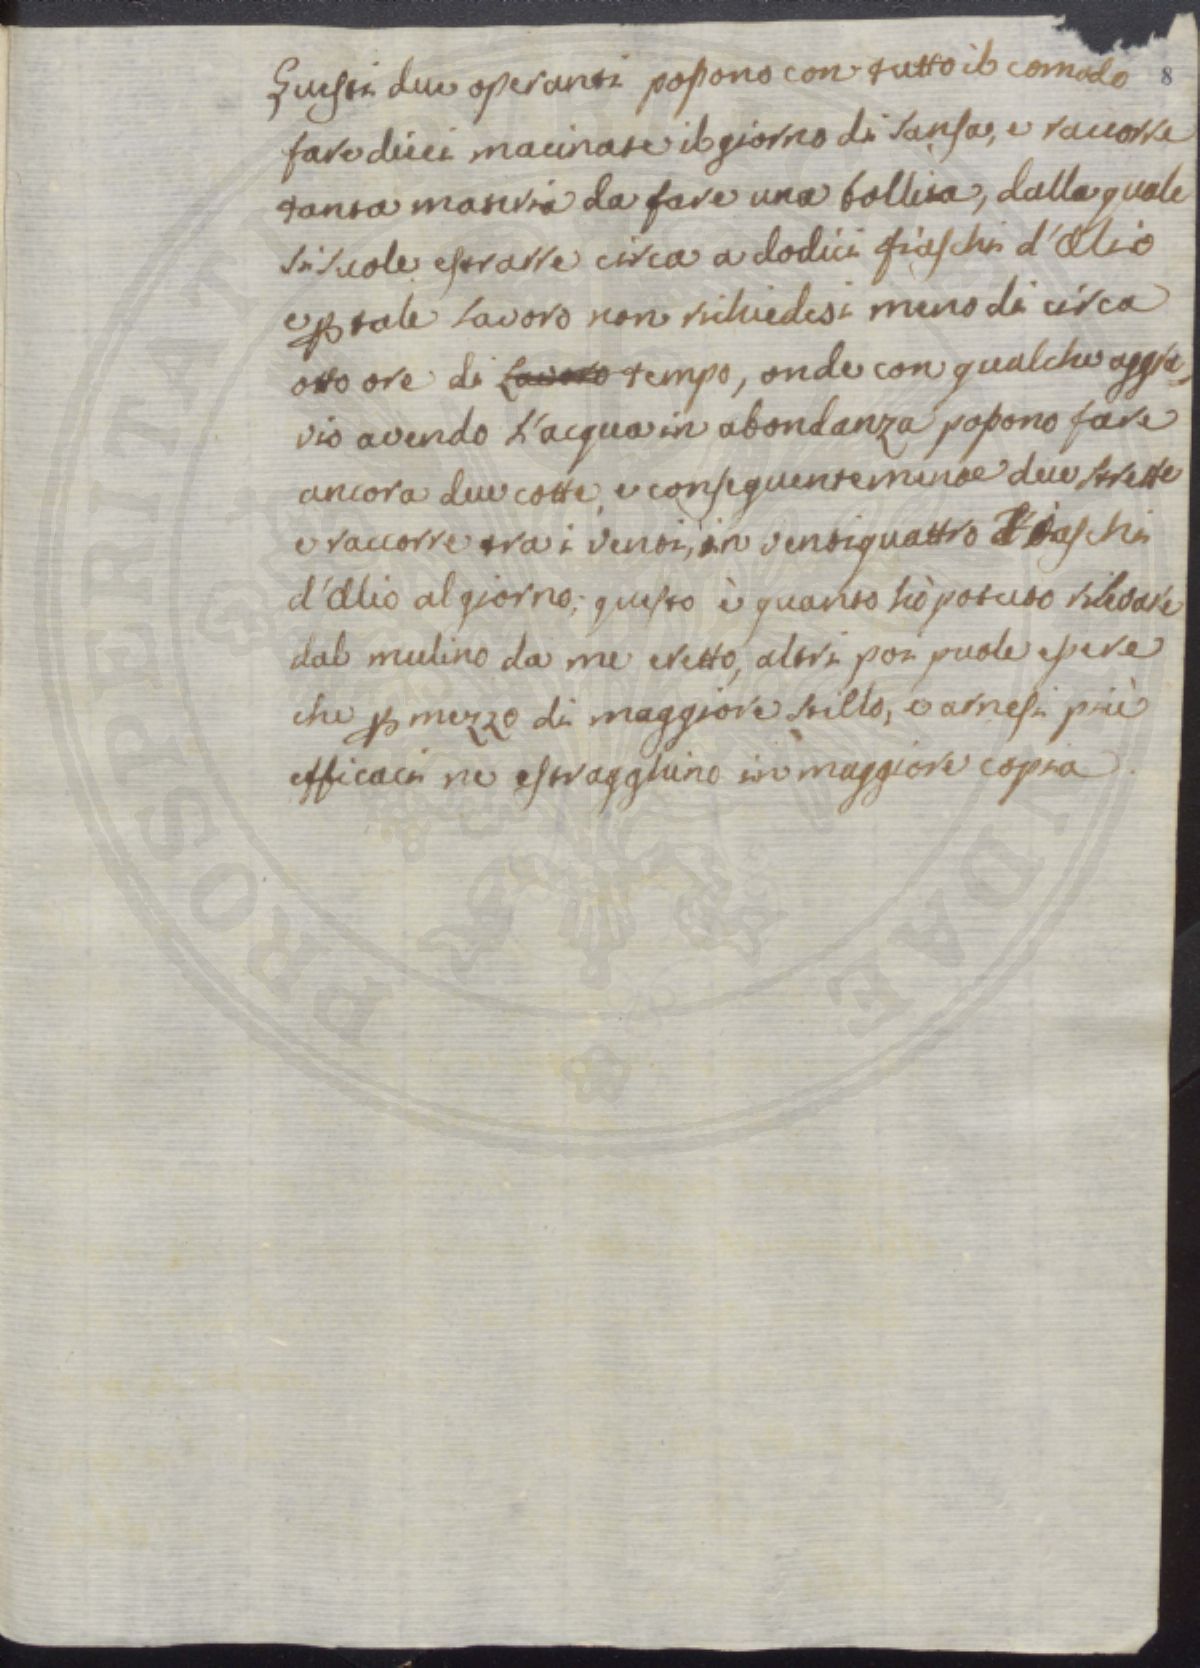 Questi due operanti possono con tutto il comodo 8
fare dieci macinate il giorno di sansa, e raccorre
tanta materia da fare una bollita, dalla quale
si suole estrarre circa a dodici fiaschi d'Olio
e ꝑ tale lavoro non richiedesi meno di circa
otto ore di lavoro tempo, onde con qualche aggra,
vio avendo l'acqua in abondanza possono fare
ancora due cotte, e conseguentemente due strette
e raccorre tra i venti, in ventiquattro Fiaschi
d'Olio al giorno; questo è quanto hò potuto rilevare
dal mulino da me eretto, altri poi puole essere
che ꝑ mezzo di maggiore stillo, e arnesi più
efficaci ne estragghino in maggiore copia.
PROSPERITATI PUBLICAE